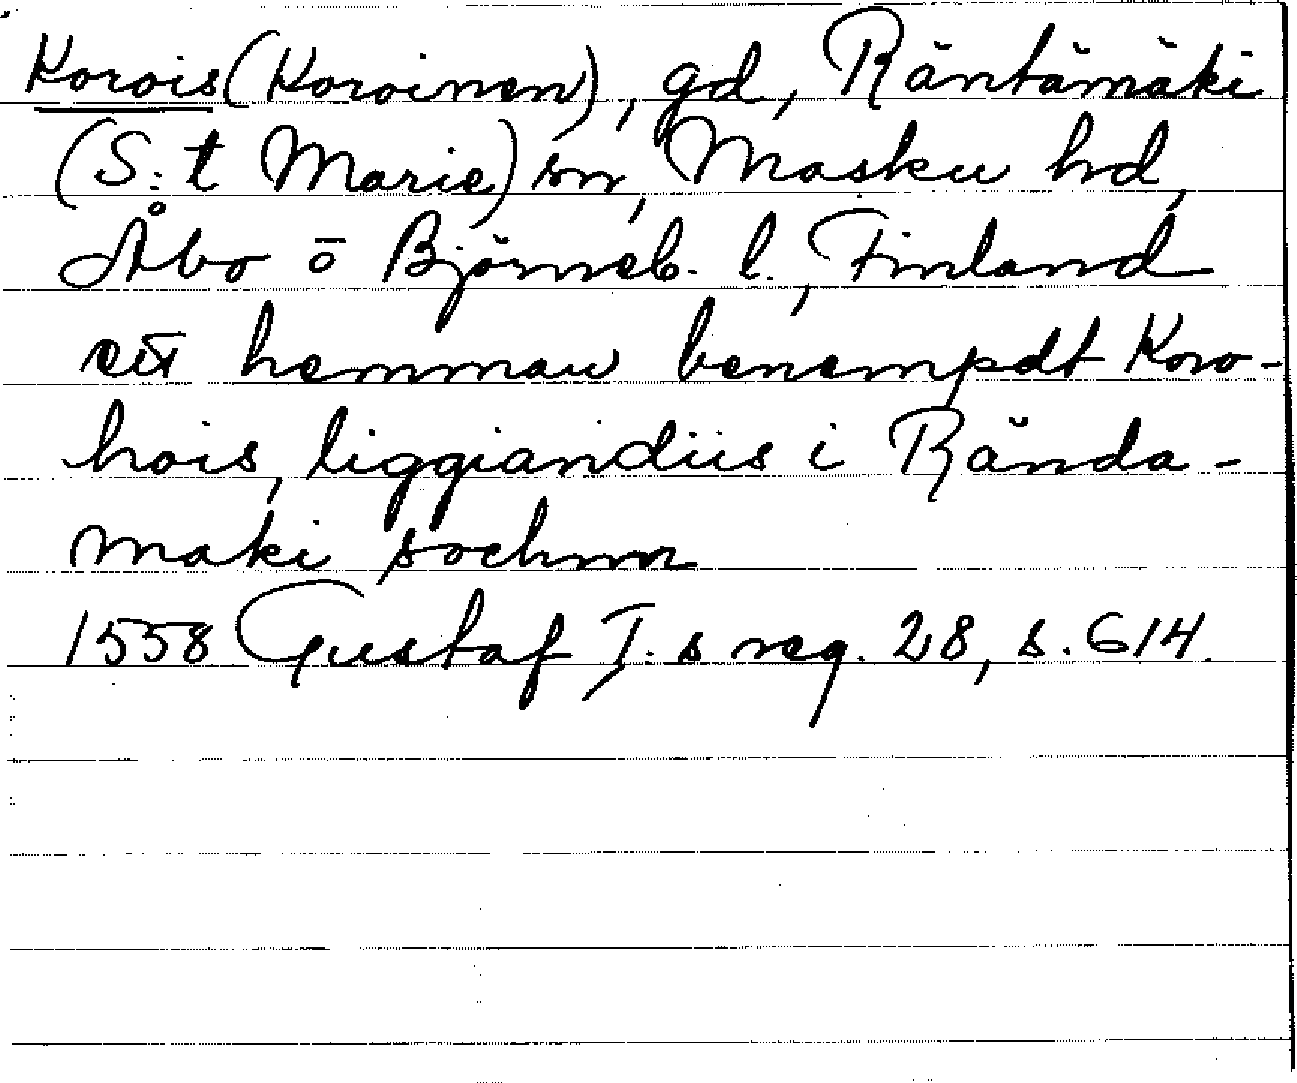 Korois (Koroinen), gd, Räntämäki
(S:t Marie) sn, Masku hd,
Åbo o Björneb. l., Finland
ett hemman benempdt Koro-
hois, liggiandiis i Rända-
maki sochnn
1558 Gustaf I:s reg. 28, s. 614.